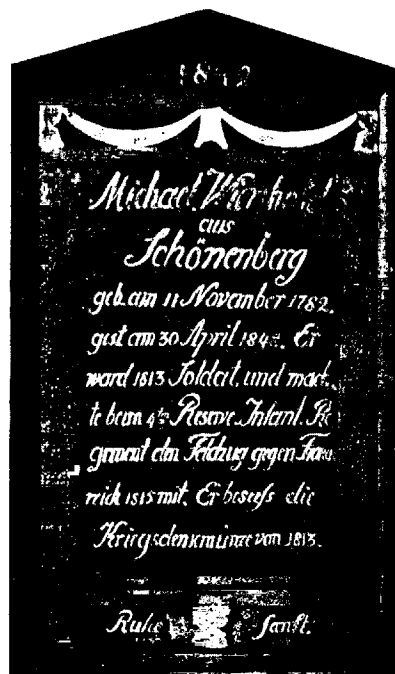 18 2
Michael
aus
Schönenberg
geb. am 11 November 1782.
gest am 30 April Er
ward 1813 Soldat, und mach-
te beim 4te Reserve Infant. Re
gement den Feldzug gegen Frank
reich 1815 mit. Er besass die
Kriegsdenkmünze von 1813.
Ruhe Sanft.